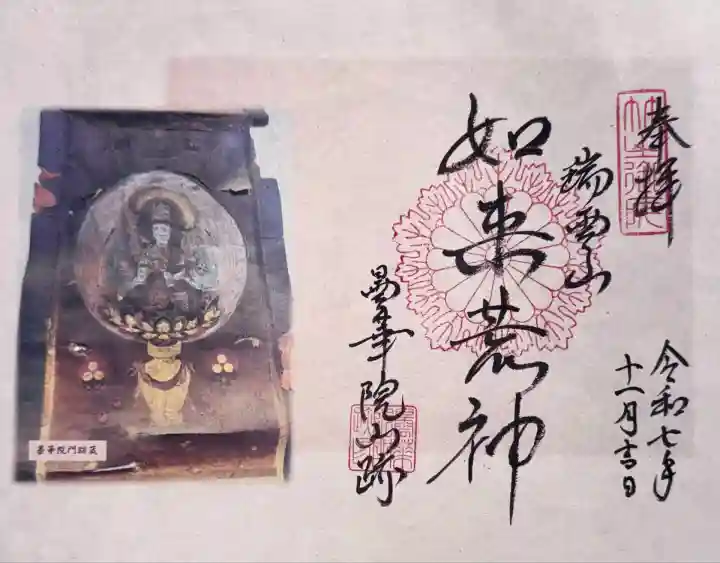 奉拝
令和七年
十一月吉日
瑞雲山
如来荒神
曇華院山跡
曇華院門跡蔵